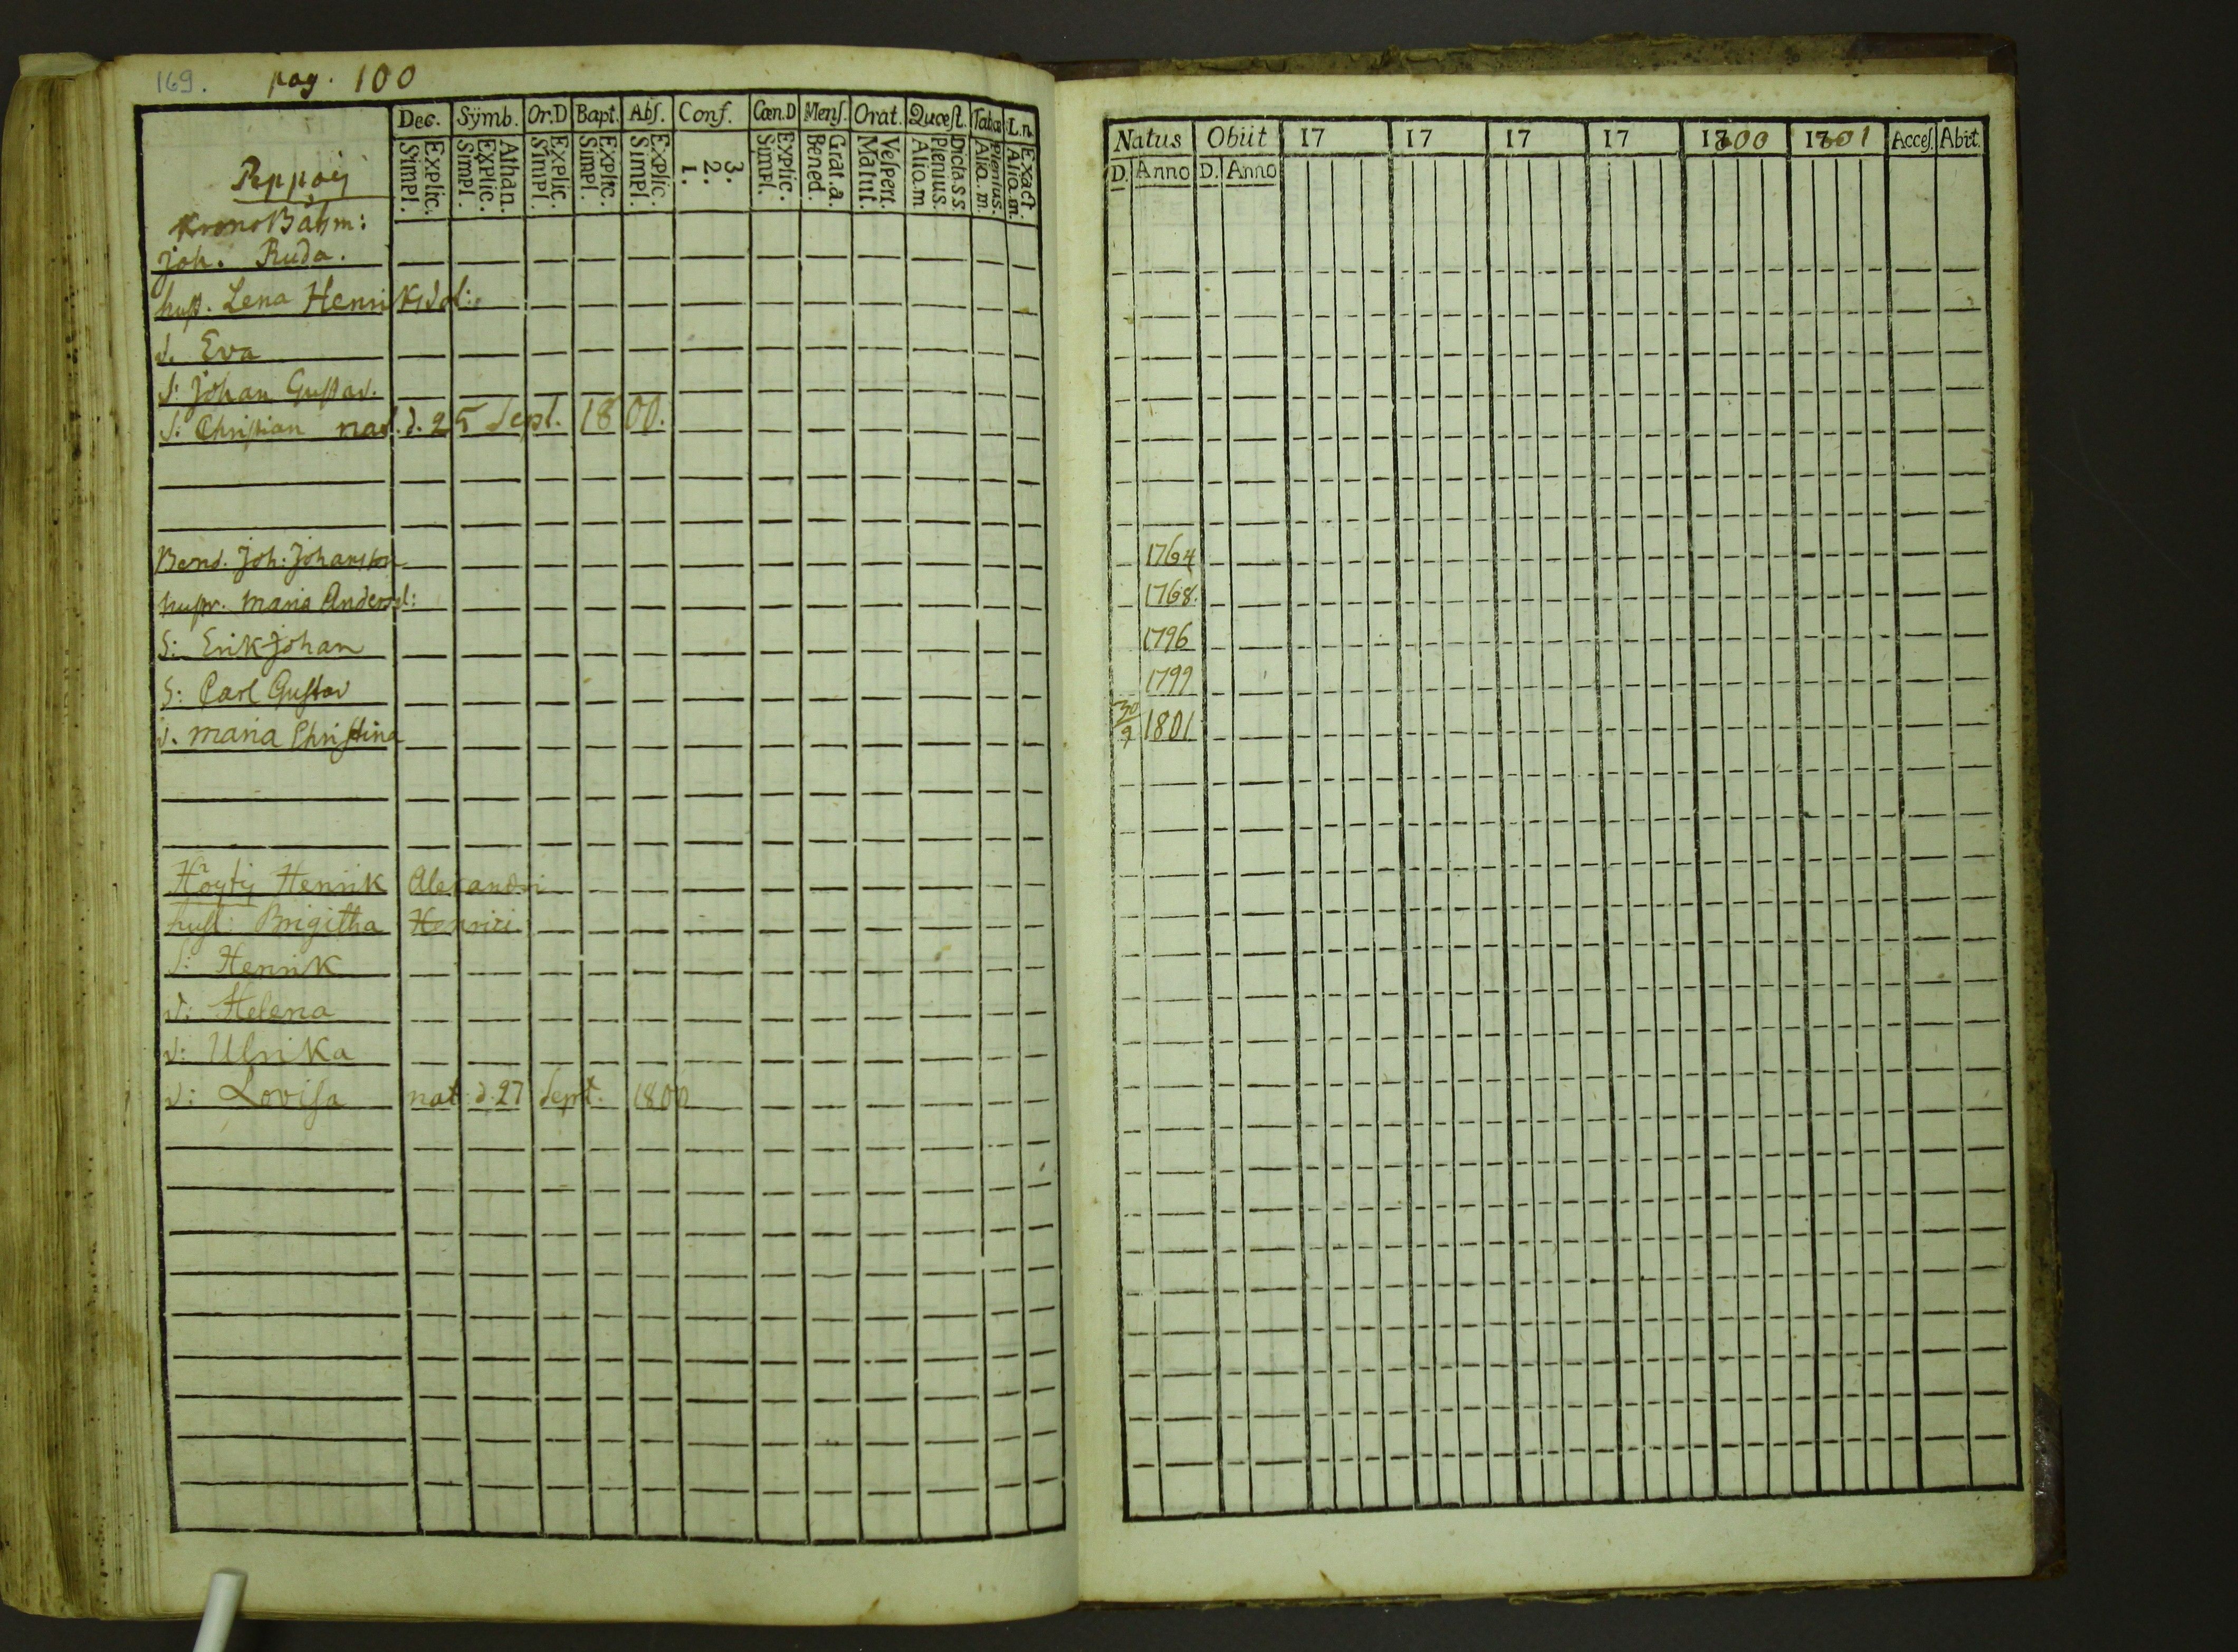 169. pag. 100
Dec. Symb. Or.D Bapt. Abſ. Conf. Cœn.D Menſ. Orat. Quœſt. Tabœ L.n.
Simpl. Explic. Simpl. Explic. Athan. Simpl. Explic. Simpl. Explic. Simpl. Explic. 1. 2. 3. Simpl. Explic. Bened. Grat.a. Matut. Veſpert. Alio.m Plenius. Dicta.s.s. Alia.m. Plenius. Alia.m. Exact.
Natus Obiit 17 17 17 17 1800 1801 Acceſ. Abiit.
D. Anno D. Anno
Peppoij
Krono Båſm:
Joh. Ruda.
huſt. Lena Henriksd:
d. Eva
S: Johan Guſtav.
S: Chriſtian nat. d. 25 Sept. 1800.
Bend. Joh: Johansson 1764
huſtr. Maria Andersd: 1768.
S: Erik Johan 1796
S: Carl Guſtav 1799
d. Maria Chriſtina 30/9 1801
Henrik Alexandri
huſt: Brigitha Henrici
S: Henrik
d: Helena
d: Ulrika
d: Loviſa nat: d. 27 Sept. 1800